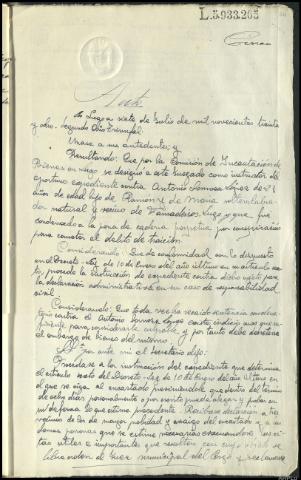 L.5.933.265
Auto
En Lugo a siete de Julio de mil novecientos treinta
y ocho. Segundo Año Triunfal.
Unase a su antecedente; y
Resultando: Que por la Comision de Incautación de
Bienes en Lugo se designó a este Juzgado como instructor del
oportuno expediente contra Antonio Somoza López de
años de edad hijo de Ramon y de Maria
natural y vecino de Lugo y que fue
condenado a la pena de cadena perpetua por conspiración
para cometer el delito de traición.
Considerando: Que de conformidad con lo dispuesto
en el Decreto-Ley de 10 de Enero del año último en su articulo
procede la instrucción de expediente contra dicho para
la declaración administrativa en su caso de responsabilidad
civil.
Considerando: Que toda vez ha recaido sentencia condena-
toria contra el Antonio Somoza López existe indicio mas que su-
ficiente para considerarle culpable y por tanto debe decretarse
el embargo de bienes del mismo.
S.Sª por ante mi el secretario dijo:
Procedase a la instrucción del expediente que determina
el articulo sexto del Decreto-Ley de 10 de Enero del año último en
el que se oiga al encartado previniendole que dentro del ter-
de ocho dias personalmente o por escrito puede alegar y probar en
su defensa lo que estime procedente. Recibase declaración a tres
vecinos de los de mayor probidad y arraigo del encartado y a las
demas personas que se estime necesarias evacuandose las ci-
tas utiles e importantes que resulten con cuyo objeto se
libre orden al Juez municipal del Corgo y reclamese